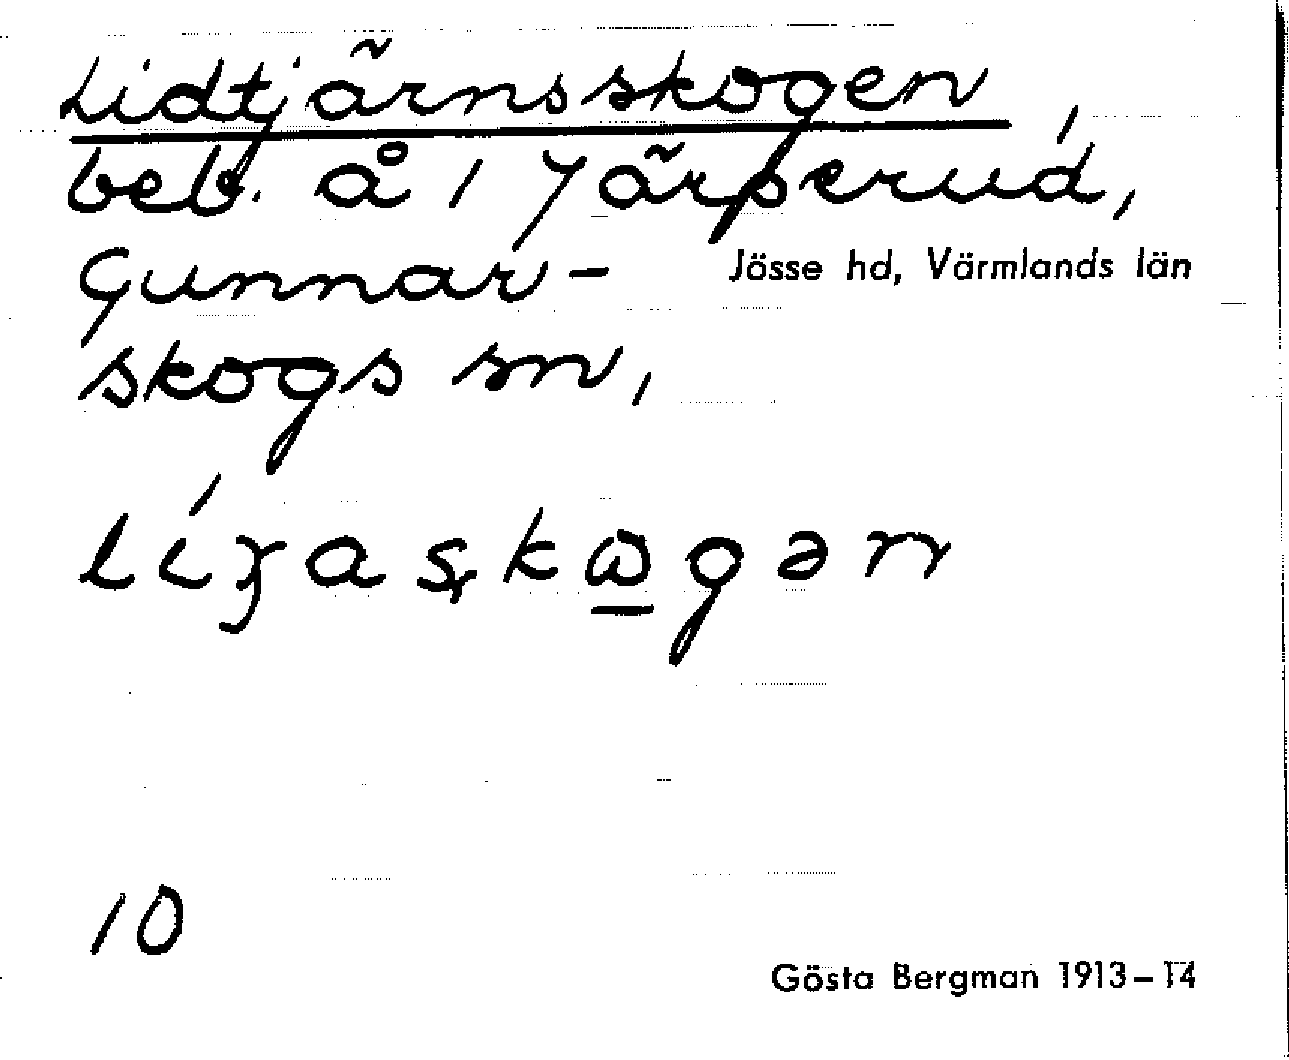 Lidtjärnsskogen,
beb. å 1 Järperud,
Gunnar-
Jösse hd, Värmlands län
skogs sn,
10
Gösta Bergman 1913–14